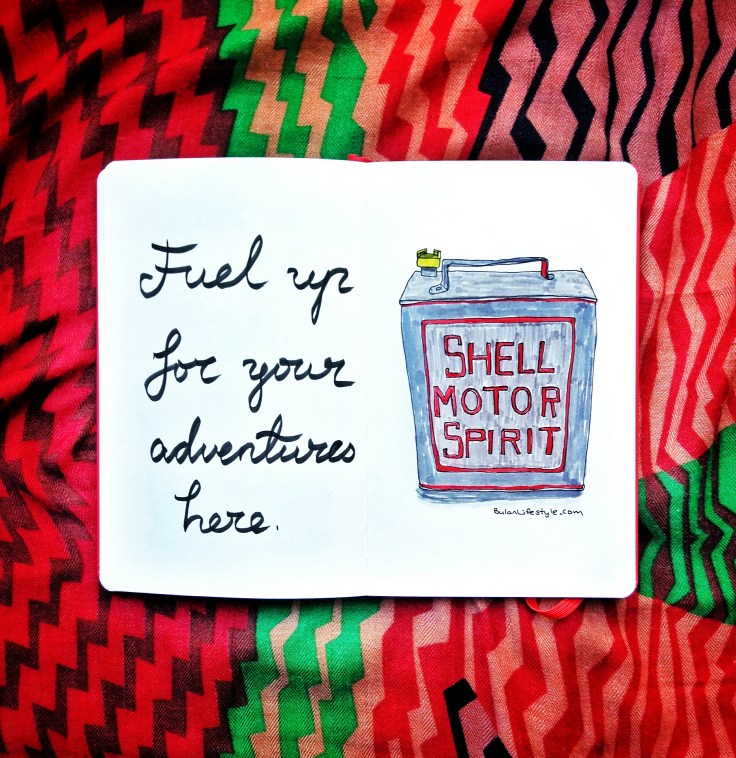 Fuel up
for your
adventures
here.
SHELL
MOTOR
SPIRIT
BulanLifestyle.com